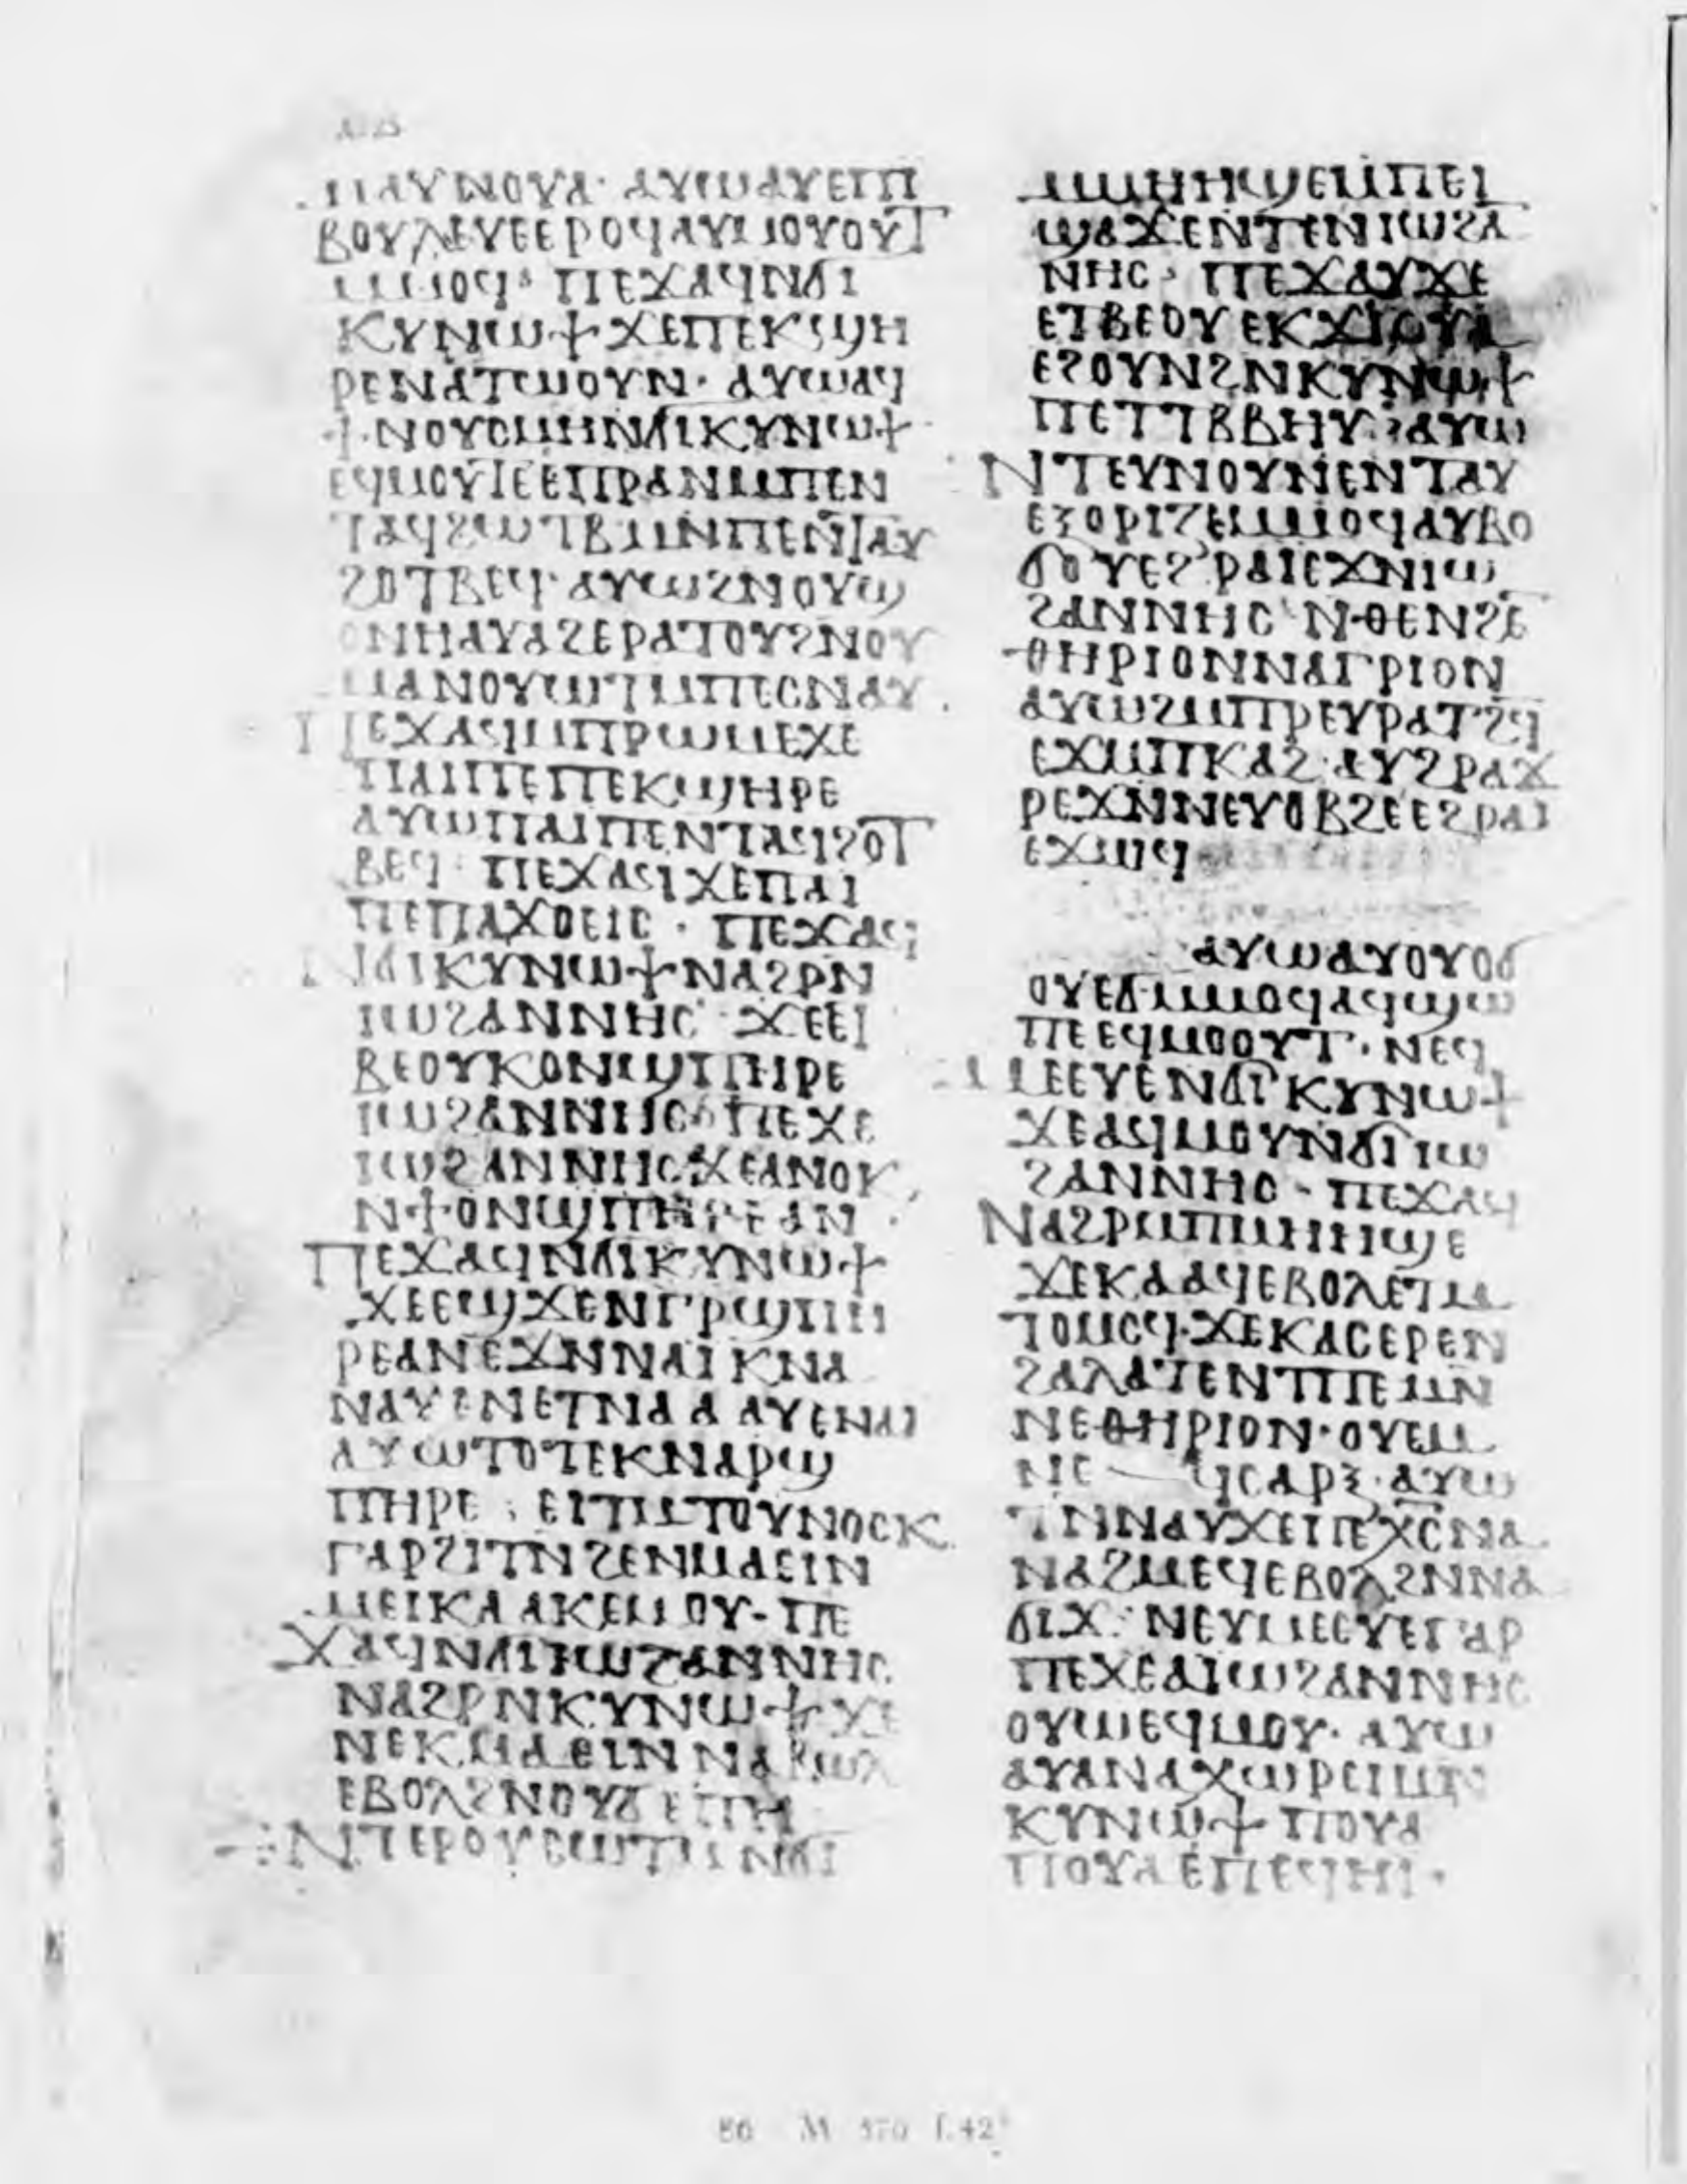 ⲙⲁⲩⲛⲟⲩⲁ· ⲁⲩⲱⲁⲩⲉⲓⲡ
ⲃⲟⲩⲗⲉⲩⲉⲉⲣⲟϥⲁⲩⲙⲟⲩⲟⲩⲧ
ⲙⲙⲟϥ· ⲡⲉϫⲁϥⲛϭⲓ
ⲕⲩⲛⲱϯϫⲉⲡⲉⲕϣⲏ
ⲣⲉⲛⲁⲧⲱⲟⲩⲛ· ⲁⲩⲱⲁϥ
ϯ·ⲛⲟⲩⲥⲙⲏⲛϭⲓⲕⲩⲛⲱϯ
ⲉϥⲙⲟⲩⲧⲉⲉⲡⲣⲁⲛⲙⲡⲉⲛ
ⲧⲁϥϩⲱⲧⲃⲙⲛⲡⲉⲛⲧⲁⲩ
ϩⲟⲧⲃⲉϥ· ⲁⲩⲱϩⲛⲟⲩϣ
ⲥⲛⲏⲁⲩⲁϩⲉⲣⲁⲧⲟⲩϩⲛⲟⲩ
ⲙⲁⲛⲟⲩⲱⲧⲙⲡⲉⲥⲛⲁⲩ
ⲡⲉϫⲁϥⲙⲡⲣⲱⲙⲉϫⲉ
ⲡⲁⲓⲡⲉⲡⲉⲕϣⲏⲣⲉ
ⲁⲩⲱⲡⲁⲓⲡⲉⲛⲧⲁϥϩⲟⲧ
ⲃⲉϥ· ⲡⲉϫⲁϥϫⲉⲡⲁⲓ
ⲡⲉⲡⲁϫⲟⲉⲓⲥ· ⲡⲉϫⲁϥ
ⲛϭⲓⲕⲩⲛⲱϯⲛⲁϩⲣⲛ
ⲓⲱϩⲁⲛⲛⲏⲥ· ϫⲉⲉⲧ
ⲃⲉⲟⲩⲕⲟⲛϣⲡⲏⲣⲉ
ⲓⲱϩⲁⲛⲛⲏⲥ ⲡⲉϫⲉ
ⲓⲱϩⲁⲛⲛⲏⲥϫⲉⲁⲛⲟⲕ
ⲛϯⲟⲛϣⲡⲏⲣⲉⲁⲛ
ⲡⲉϫⲁϥⲛϭⲓⲕⲩⲛⲱϯ
ϫⲉⲉϣϫⲉⲛⲅⲣϣⲡⲏ
ⲣⲉⲁⲛⲉϫⲛⲛⲁⲓⲕⲛⲁ
ⲛⲁⲩⲉⲛⲉⲧⲛⲁⲁⲁⲩⲉⲛⲁⲓ
ⲁⲩⲱⲧⲟⲧⲉⲕⲛⲁⲣϣ
ⲡⲏⲣⲉ· ⲉⲓⲧⲙⲧⲟⲩⲛⲟⲥⲕ
ⲅⲁⲣϩⲓⲧⲛϩⲉⲛⲙⲁⲉⲓⲛ
ⲙⲉⲓⲕⲁⲁⲕⲉⲙⲟⲩ· ⲡⲉ
ϫⲁϥⲛϭⲓⲓⲱϩⲁⲛⲛⲏⲥ
ⲛⲁϩⲣⲛⲕⲩⲛⲱϯϫⲉ
ⲛⲉⲕⲙⲁⲉⲓⲛⲛⲁⲃⲱⲗ
ⲉⲃⲟⲗϩⲛⲟⲩϭⲉⲡⲏ
ⲛⲧⲉⲣⲟⲩⲥⲱⲧⲙⲛϭⲓ
ⲙⲙⲏⲏϣⲉⲙⲡⲉⲓ
ϣⲁϫⲉⲛⲧⲉⲛⲓⲱϩⲁ
ⲛⲏⲥ· ⲡⲉϫⲁⲩϫⲉ
ⲉⲧⲃⲉⲟⲩⲉⲕϫⲓⲟⲩⲁ
ⲉϩⲟⲩⲛϩⲛⲕⲩⲛⲱϯ
ⲡⲉⲧⲧⲃⲃⲏⲩ· ⲁⲩⲱ
ⲛⲧⲉⲩⲛⲟⲩⲛⲉⲛⲧⲁⲩ
ⲉⲝⲟⲣⲓⲍⲉⲙⲙⲟϥⲁⲩⲃⲟ
ϭⲟⲩⲉϩⲣⲁⲓⲉϫⲛⲓⲱ
ϩⲁⲛⲛⲏⲥ ⲛⲑⲉⲛϩⲉ
ⲑⲏⲣⲓⲟⲛⲛⲁⲅⲣⲓⲟⲛ
ⲁⲩⲱϩⲙⲡⲣⲉⲩⲣⲁⲧϩϥ
ⲉϫⲙⲡⲕⲁϩ·ⲁⲩϩⲣⲁϫ
ⲣⲉϫⲛⲛⲉⲩⲟⲃϩⲉⲉϩⲣⲁⲓ
ⲉϫⲱϥ
ⲁⲩⲱⲁⲩⲟⲩⲟϭ
ⲟⲩⲉϭⲙⲙⲟϥⲁϥϣⲱ
ⲡⲉⲉϥⲙⲟⲟⲩⲧ· ⲛⲉϥ
ⲙⲉⲉⲩⲉⲛϭⲓⲕⲩⲛⲱϯ
ϫⲉⲁϥⲙⲟⲩⲛϭⲓⲓⲱ
ϩⲁⲛⲛⲏⲥ· ⲡⲉϫⲁϥ
ⲛⲁϩⲣⲙⲡⲙⲏⲏϣⲉ
ϫⲉⲕⲁⲁϥⲉⲃⲟⲗⲉⲧⲙ
ⲧⲟⲙⲥϥ·ϫⲉⲕⲁⲥⲉⲣⲉⲛ
ϩⲁⲗⲁⲧⲉⲛⲧⲡⲉⲙⲛ
ⲛⲉⲑⲏⲣⲓⲟⲛ·ⲟⲩⲉⲙ
ⲛⲉ— ϥⲥⲁⲣⲝ·ⲁⲩⲱ
ⲧⲛⲛⲁⲩϫⲉⲓⲡⲉⲭⲥⲛⲁ
ⲛⲁϩⲙⲉϥⲉⲃⲟⲗϩⲛⲛⲁ
ϭⲓϫ· ⲛⲉⲩⲙⲉⲉⲩⲉⲅⲁⲣ
ⲡⲉϫⲉⲁⲓⲱϩⲁⲛⲛⲏⲥ
ⲟⲩⲱⲉϥⲙⲟⲩ· ⲁⲩⲱ
ⲁⲩⲁⲛⲁⲭⲱⲣⲉⲓⲙⲛ
ⲕⲩⲛⲱϯ ⲡⲟⲩⲁ
ⲡⲟⲩⲁⲉⲡⲉϥⲏⲓ·
86 M 570 f.42ᵛ